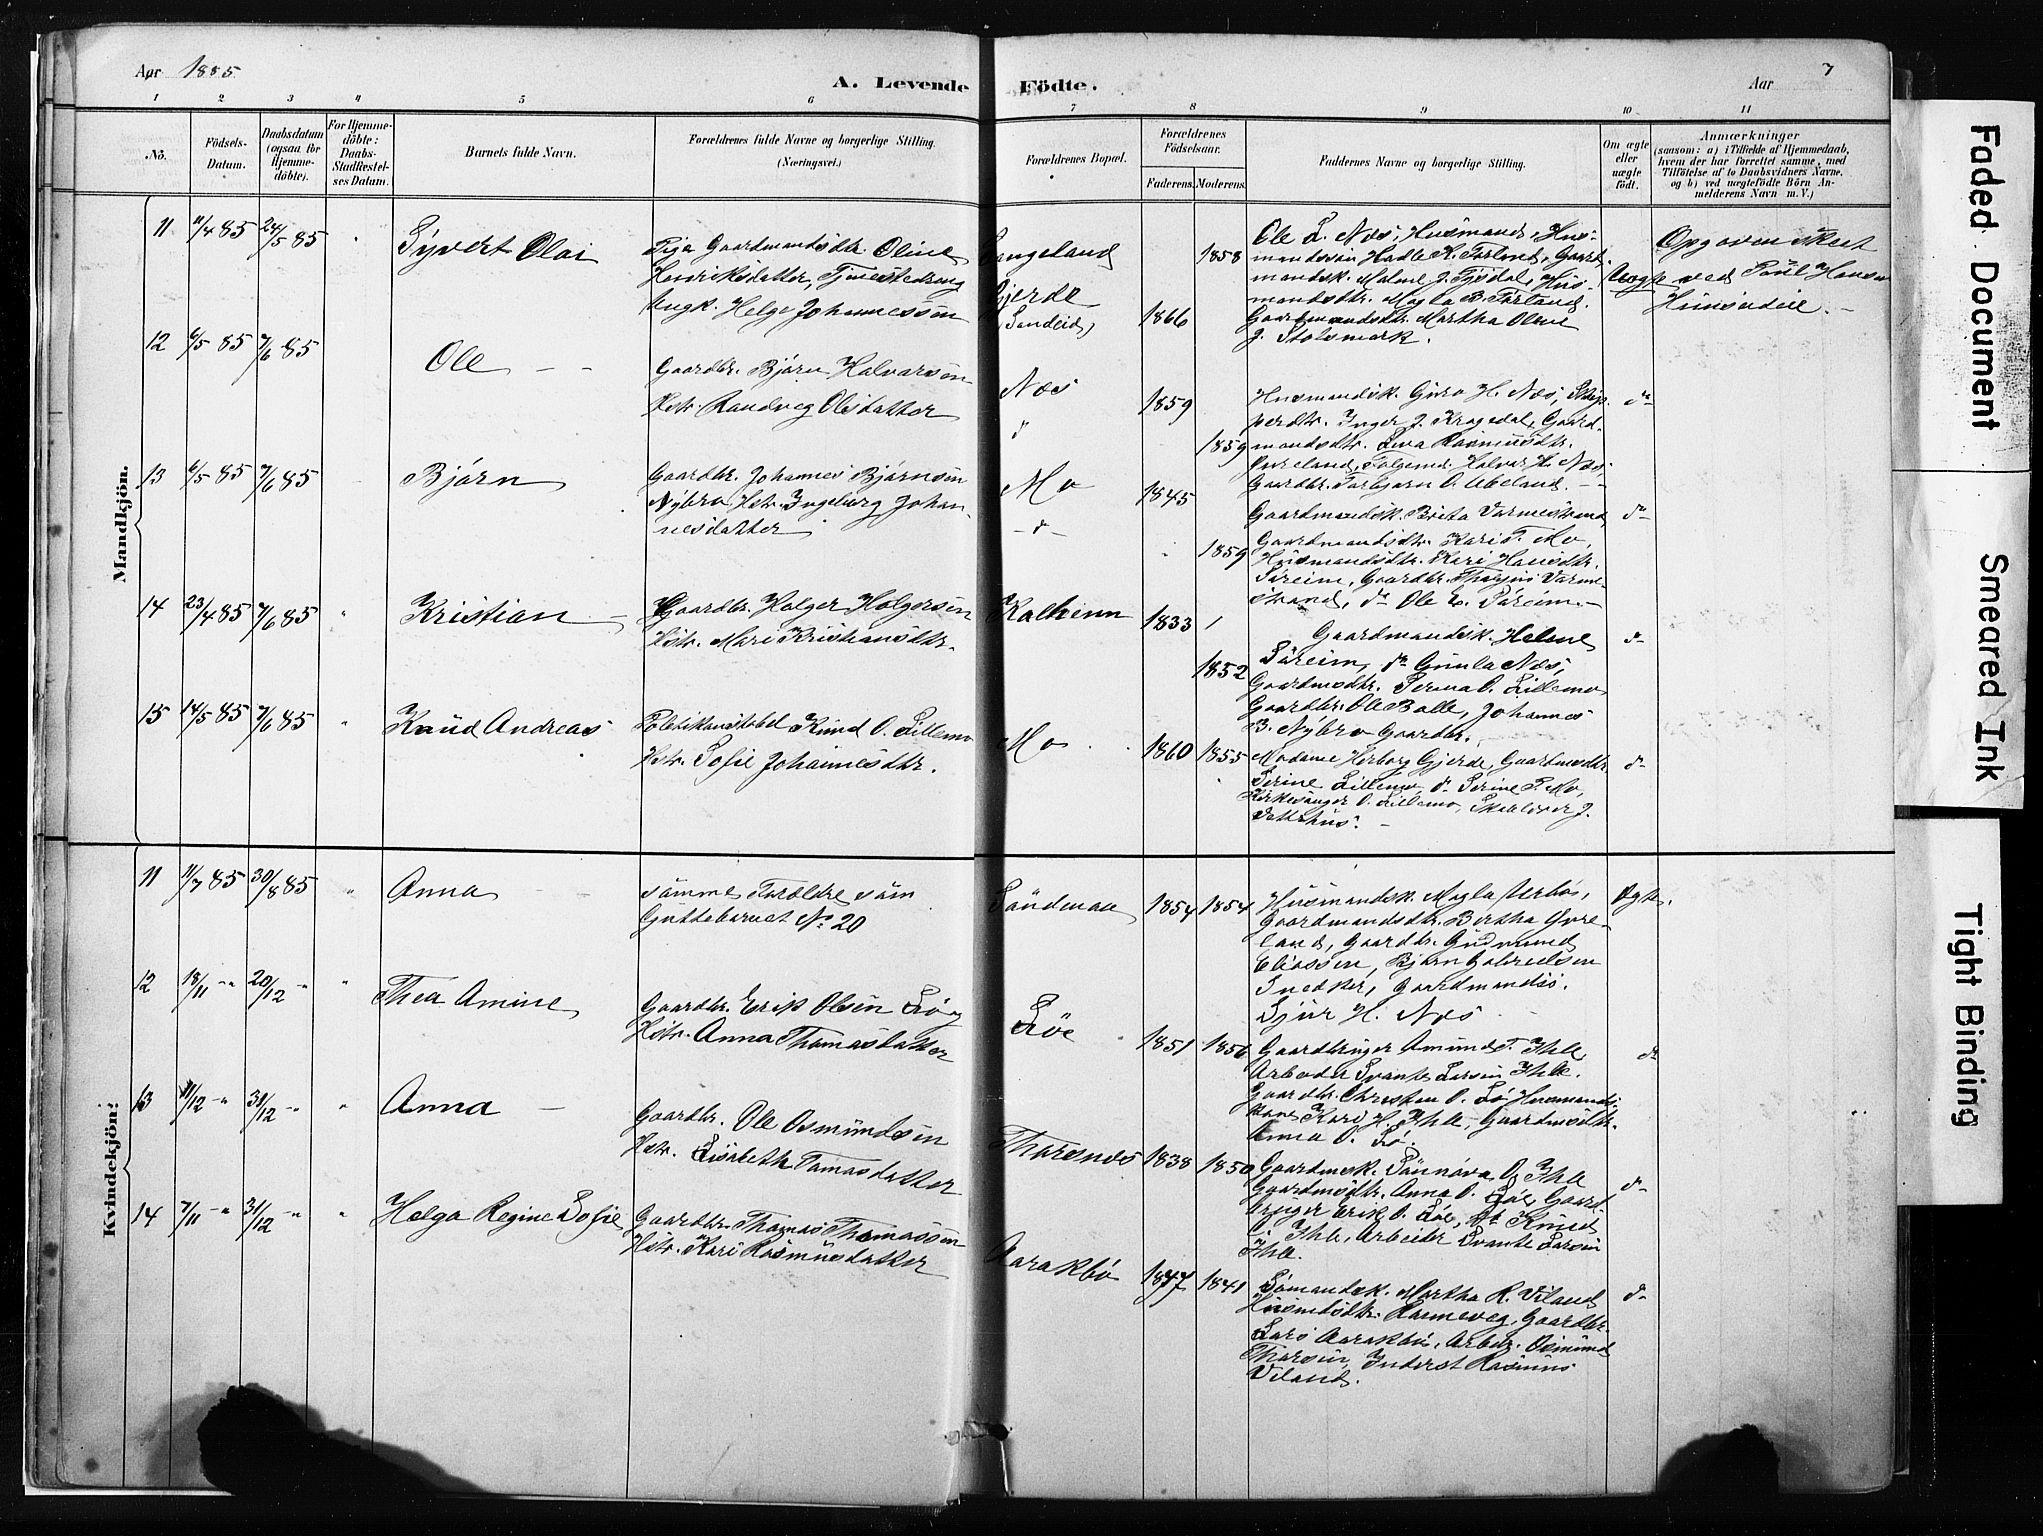 Aar 1885
A. Levende Födte.
Aar
7
1 2 3 4 5 6 7 8 9 10 11
No.
Födsels-
Datum.
Daabsdatum
(ogsaa for
Hjemme-
döbte).
For Hjemme-
döbte:
Daabs-
Stadfæstel-
ses Datum.
Barnets fulde Navn.
Forældrenes fulde Navne og borgerlige Stilling.
(Næringsvei.)
Forældrenes Bopæl.
Forældrenes
Födselsaar.
Faderens.
Moderens.
Faddernes Navne og borgerlige Stilling.
Om ægte
eller
uægte
födt.
Anmærkninger
(saasom: a) i Tilfælde af Hjemmedaab,
hvem der har forrettet samme, med
Tilföielse af to Daabsvidners Navne.
og b) ved uægtefödte Börn An-
melderens Navn m. V.)
Mandkjön.
11 11/4 85 24/5 85
Syvert Olai
Pige Gaardmandsdtr. Oline
Henriksdatter, Tjenestedreng
Ungk. Helge Johannessøn
Langeland
Gjerde
(Sandeid)
1866
1858
Ole L. Næs, Husmand, Hus-
mandssøn Hadle K. Førland, Gaard-
mandsk. Malene J. Fjøsdal, Hus-
mandsdtr. Magla B. Førland
Gaardmandsdtr. Martha Oline
J. Stølsmark.
Uægte
Opgaven skeet
ved Poul Hansen
Huseneie.
12 6/5 85 7/6 85
Ole
Gaardbr. Bjørn Halvorsøn
Hstr. Randveg Olsdatter
Næs
d
1859
1859
Husmandsk. Guro H. Næs, Skip-
perdtr. Inger J. Kragedal, Gaard-
mandsdtr. Lina Rasmusdtr.
Øvreland, Følgemd. Halvor H. Næs
Gaardbr. Torbjørn O. Ubeland.
do
13 6/5 85 7/6 85
Bjørn
Gaardbr. Johannes Bjørnsøn
Nybro, Hstr. Ingeborg Johan-
nesdatter
Mo
d
1845
1859
Gaardmandsk. Brita Varmestrand
Gaardmandsdtr. Kari T. Mo,
Husmandsdtr. Kari Hansdtr.
Søreim, Gaardbr. Thorjus Varme-
strand, do Ole E. Søreim.
do
14 23/4 85 7/6 85
Kristian
Gaardbr. Holger Holgersøn
Hstr. Mari Kristiansdtr.
Kalheim
1833
1852
Gaardmandsk. Helene
Søreim, do Gunla Næs,
Gaardmsdtr. Serina O. Lillemo
Gaardbr. Ole Balle, Johannes
B. Nybro Gaardbr.
do
15 14/5 85 7/6 85
Knud Andreas
Politikonstabel Knud O. Lillemo
Hstr. Sofie Johannesdtr.
Mo
1860 1855
Madame Herborg Gjerde, Gaardmsdtr.
Serine Lillemo, do Serine P. Mo,
Kirkesanger O. Lillemo, Skolelærer J.
Vatshus.
do
Kvindekjön:
11 11/7 85 30/8 85
Anna
samme Forældre som
Guttebarnet No 20
Søndenaa
1854 1854
Husmandsk. Magla Aarbø,
Gaardmandsdtr. Bertha Øvre-
land, Gaardbr. Gudmund
Eliassen, Bjørn Gabrielsen
Snedker, Gaardmandss.
Sjur H. Næs
Ægte.
12 18/11 " 20/12 "
Thea Amine
Gaardbr. Erik Olsen Løe
Hstr. Anna Thomasdatter
Løe
1851 1856
Gaardbruger Amund T. Ihle
Arbeider Svante Larsen Ihle.
Gaardbr. Christen O. Lø, Husmands-
kone Kari H. Ihle, Gaardmsdtr.
Anna O. Lø.
do
13 11/12 " 31/12 "
Anna
Gaardbr. Ole Osmundsen
Hstr. Lisabeth Tomasdatter
Thorsnes
1838 1850
Gaardmsk. Sønnøva O. Ihle
Gaardmsdtr. Anna O. Løe, Gaard-
bruger Erik O. Løe, do Knud
O. Ihle, Arbeider Svante Larsen
Ihle.
do
14 7/11 " 31/12 "
Helga Regine Sofie
Gaardbr. Thomas Thomassen
Hstr. Kari Rasmusdatter
Aarakbø
1847 1841
Sømandsk. Martha R. Viland
Husmsdtr. Ranneveg, Gaardbr.
Lars Aarakbø, Arbdr. Osmund
Thorsen, Inderst Rasmus
Viland.
do
Faded Document
Smeared Ink
Tight Binding